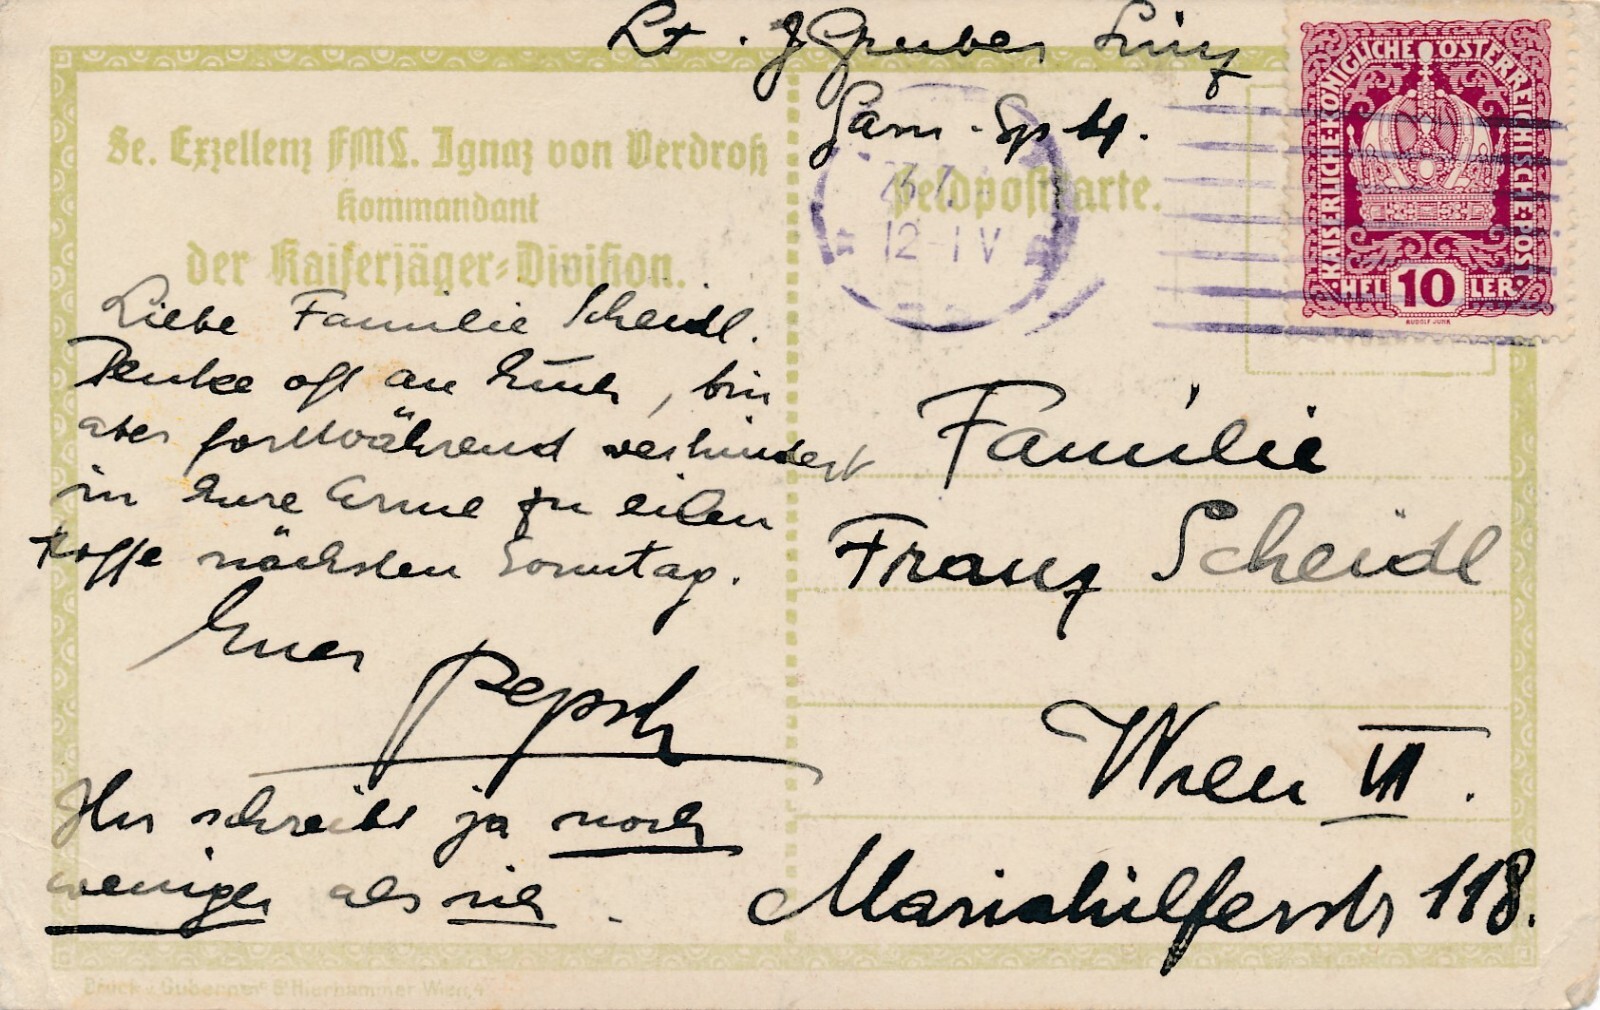 Lt. J Gruber Linz
Garn. Sp. 4.
Se. Exzellenz FML. Ignaz von Verdroß
Kommandant
der Kaiserjäger-Division.
Feldpostkarte.
23.7.
12-1V
KAISERLICHE KÖNIGLICHE ÖSTERREICHISCHE POST
HEL 10 LER
RUDOLF JUNK
Liebe Familie Scheidl.
Denke oft an Euch, bin
aber fortwährend verhindert
in Eure Arme zu eilen
Hoffe nächsten Sonntag.
Euer
Pepsch
Ihr schreibt ja noch
weniger als ich.
Familie
Franz Scheidl
Wien VI.
Mariahilferstr 118.
Druck v. Guberner & Hierhammer Wien, 4